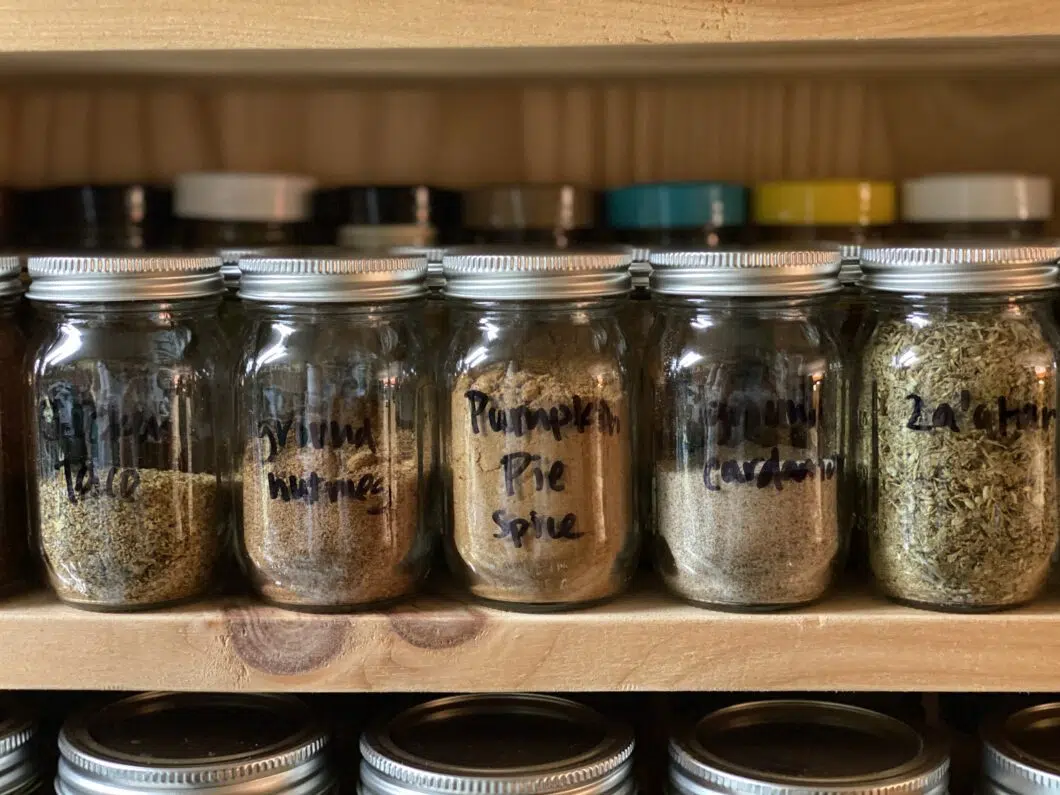 Taco
ground
nutmeg
Pumpkin
Pie
spice
ground
Cardamom
Za'atar